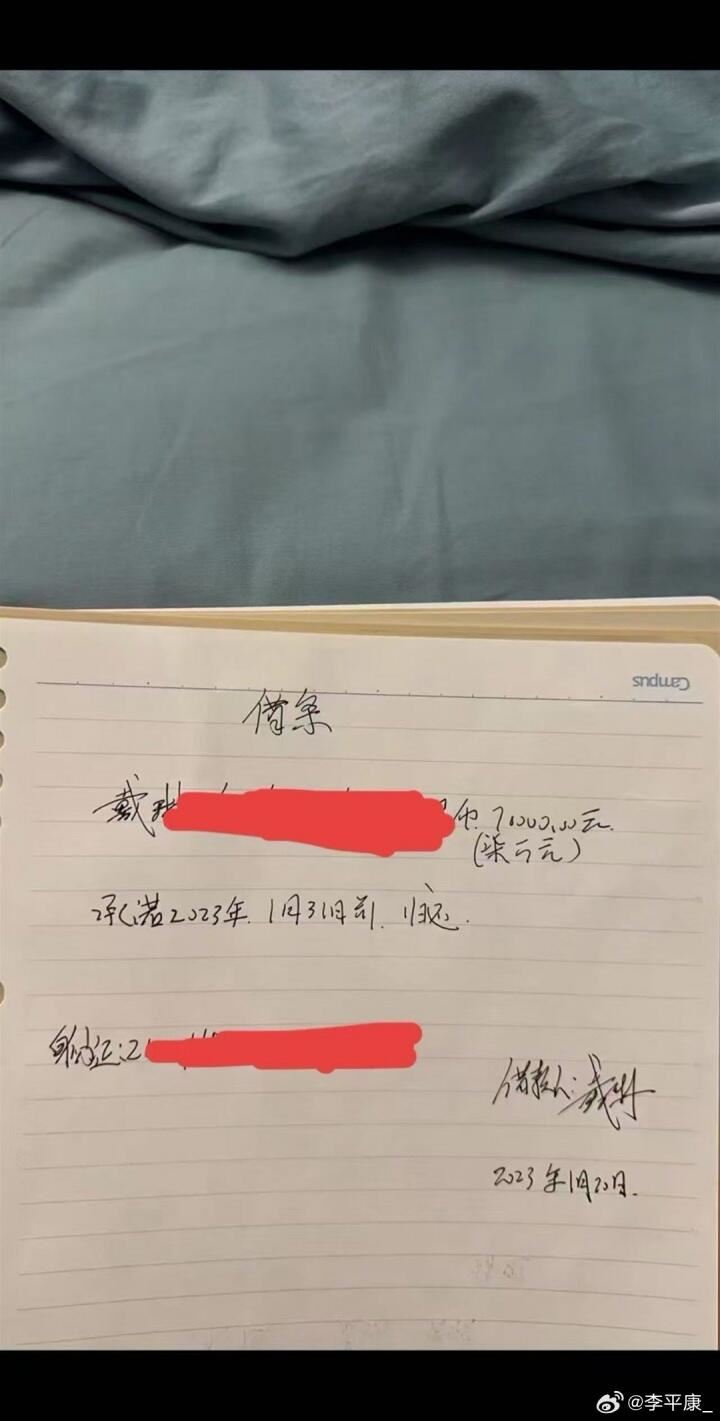 Campus
借条
戴琳 币 70000.00元.
(柒万元)
承诺2023年.1月31日前.归还.
身份证:2
借款人:戴琳
2023年1月20日.
@李平康_